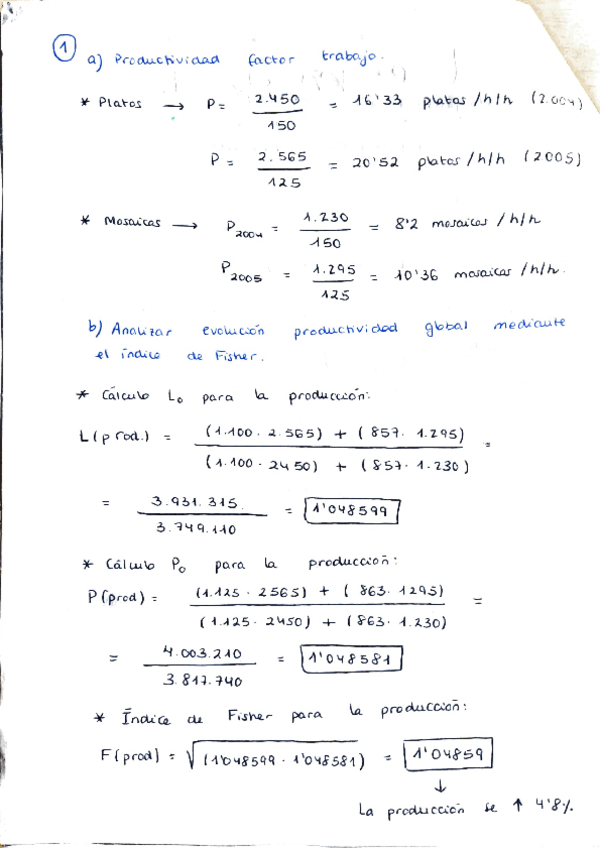 1 a) Productividad factor trabajo.
* Platos → P = 2.450 / 150 = 16'33 platos /h/h (2.004)
P = 2.565 / 125 = 20'52 platos /h/h (2005)
* Mosaicos → P2004 = 1.230 / 150 = 8'2 mosaicos /h/h
P2005 = 1.295 / 125 = 10'36 mosaicos /h/h.
b) Analizar evolución productividad global mediante
el índice de Fisher.
* Cálculo Lo para la producción:
L(prod.) = (1.100 · 2.565) + (857 · 1.295) / (1.100 · 2450) + (857 · 1.230) =
= 3.931.315 / 3.749.110 = 1'048599
* Cálculo Po para la producción:
P(prod) = (1.125 · 2565) + (863 · 1295) / (1.125 · 2450) + (863 · 1.230) =
= 4.003.210 / 3.817.740 = 1'048581
* Índice de Fisher para la producción:
F(prod) = √(1'048599 · 1'048581) = 1'04859
↓
La producción se ↑ 4'8%.